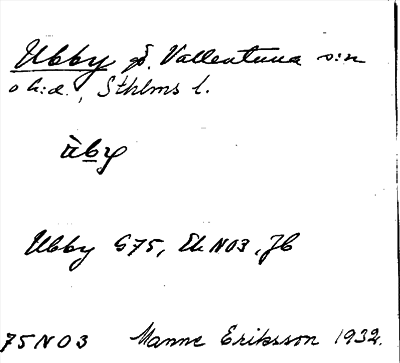 Ubby gd. Vallentuna s:n
o h:d., Sthlms l.
ùby
Ubby G75, Ek NO3, JB
75 NO3 Manne Eriksson 1932.